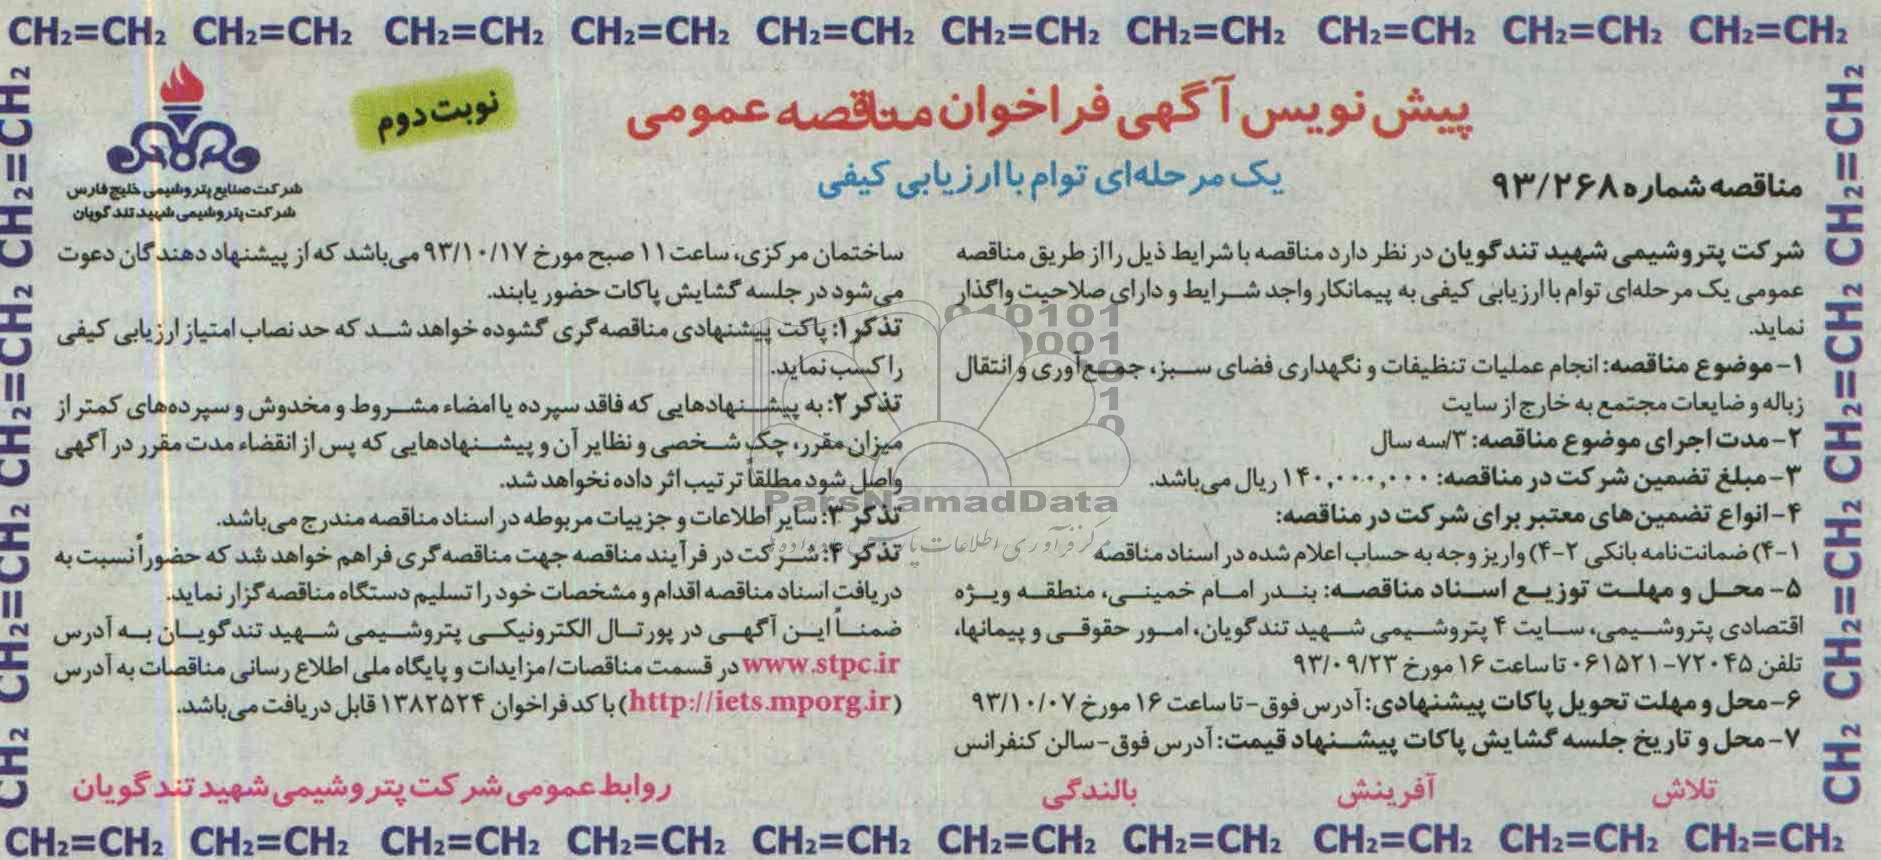 CH₂=CH₂ CH₂=CH₂ CH₂=CH₂ CH₂=CH₂ CH₂=CH₂ CH₂=CH₂ CH₂=CH₂ CH₂=CH₂ CH₂=CH₂ CH₂=CH₂
پیش نویس آگهی فراخوان مناقصه عمومی
نوبت دوم
یک مرحله‌ای توام با ارزیابی کیفی
مناقصه شماره ۹۳/۲۶۸
شرکت صنایع پتروشیمی خلیج فارس
شرکت پتروشیمی شهید تندگویان
شرکت پتروشیمی شهید تندگویان در نظر دارد مناقصه با شرایط ذیل را از طریق مناقصه
عمومی یک مرحله‌ای توام با ارزیابی کیفی به پیمانکار واجد شرایط و دارای صلاحیت واگذار
نماید.
۱- موضوع مناقصه: انجام عملیات تنظیفات و نگهداری فضای سبز، جمع‌آوری و انتقال
زباله و ضایعات مجتمع به خارج از سایت
۲- مدت اجرای موضوع مناقصه: ۳/سه سال
۳- مبلغ تضمین شرکت در مناقصه: ۱۴۰,۰۰۰,۰۰۰ ریال می‌باشد.
۴- انواع تضمین‌های معتبر برای شرکت در مناقصه:
۴-۱) ضمانت‌نامه بانکی ۴-۲) واریز وجه به حساب اعلام شده در اسناد مناقصه
۵- محل و مهلت توزیع اسناد مناقصه: بندر امام خمینی، منطقه ویژه
اقتصادی پتروشیمی، سایت ۴ پتروشیمی شهید تندگویان، امور حقوقی و پیمانها،
تلفن ۷۲۰۴۵-۰۶۱۵۲۱ تا ساعت ۱۶ مورخ ۹۳/۰۹/۲۳
۶- محل و مهلت تحویل پاکات پیشنهادی: آدرس فوق- تا ساعت ۱۶ مورخ ۹۳/۱۰/۰۷
۷- محل و تاریخ جلسه گشایش پاکات پیشنهاد قیمت: آدرس فوق- سالن کنفرانس
ساختمان مرکزی، ساعت ۱۱ صبح مورخ ۹۳/۱۰/۱۷ می‌باشد که از پیشنهاد دهندگان دعوت
می‌شود در جلسه گشایش پاکات حضور یابند.
تذکر ۱: پاکت پیشنهادی مناقصه‌گری گشوده خواهد شد که حد نصاب امتیاز ارزیابی کیفی
را کسب نماید.
تذکر ۲: به پیشنهادهایی که فاقد سپرده یا امضاء مشروط و مخدوش و سپرده‌های کمتر از
میزان مقرر، چک شخصی و نظایر آن و پیشنهادهایی که پس از انقضاء مدت مقرر در آگهی
واصل شود مطلقاً ترتیب اثر داده نخواهد شد.
تذکر ۳: سایر اطلاعات و جزییات مربوطه در اسناد مناقصه مندرج می‌باشد.
تذکر ۴: شرکت در فرآیند مناقصه جهت مناقصه‌گری فراهم خواهد شد که حضوراً نسبت به
دریافت اسناد مناقصه اقدام و مشخصات خود را تسلیم دستگاه مناقصه گزار نماید.
ضمناً این آگهی در پورتال الکترونیکی پتروشیمی شهید تندگویان به آدرس
www.stpc.ir در قسمت مناقصات/مزایدات و پایگاه ملی اطلاع رسانی مناقصات به آدرس
(http://iets.mporg.ir) با کد فراخوان ۱۳۸۲۵۲۴ قابل دریافت می‌باشد.
تلاش آفرینش بالندگی
روابط عمومی شرکت پتروشیمی شهید تندگویان
ParsNamadData
CH₂=CH₂ CH₂=CH₂ CH₂=CH₂ CH₂=CH₂ CH₂=CH₂ CH₂=CH₂ CH₂=CH₂ CH₂=CH₂ CH₂=CH₂ CH₂=CH₂
CH₂ CH₂=CH₂ CH₂=CH₂ CH₂=CH₂
CH₂ CH₂=CH₂ CH₂=CH₂ CH₂=CH₂